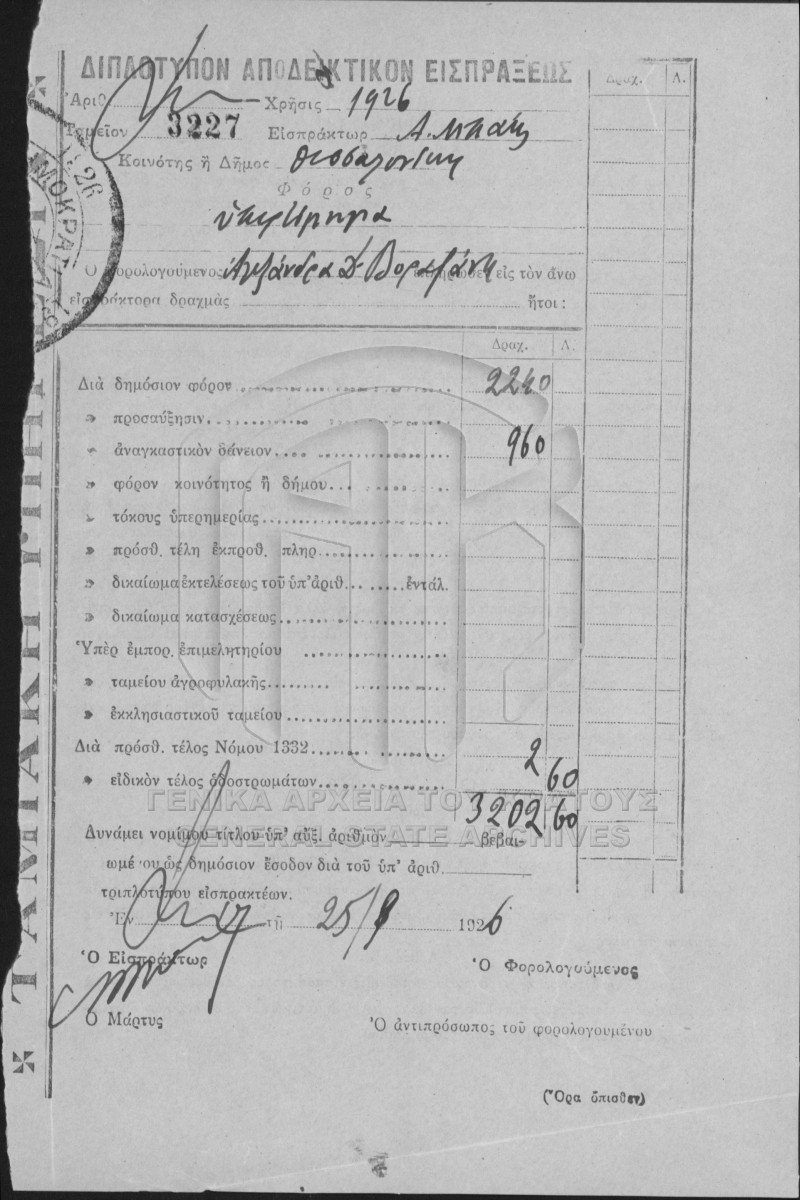 ΔΙΠΛΟΤΥΠΟΝ ΑΠΟΔΕΙΚΤΙΚΟΝ ΕΙΣΠΡΑΞΕΩΣ
Δραχ. Λ.
Ἀριθ. Χρῆσις 1926
Ταμεῖον 3227 Εἰσπράκτωρ Α.
Κοινότης ἢ Δῆμος Θεσσαλονίκης
Φόρος
ὑπερτίμημα
Ὁ φορολογούμενος Ἀλεξάνδρα Δ. εἰς τὸν ἄνω
εἰσπράκτορα δραχμὰς ἤτοι:
Δραχ. Λ.
Διὰ δημόσιον φόρον 2240
» προσαύξησιν
» ἀναγκαστικὸν δάνειον 960
» φόρον κοινότητος ἢ δήμου
» τόκους ὑπερημερίας
» πρόσθ. τέλη ἐκπροθ. πληρ.
» δικαίωμα ἐκτελέσεως τοῦ ὑπ' ἀριθ. ἐντάλ.
» δικαίωμα κατασχέσεως
Ὑπὲρ ἐμπορ. ἐπιμελητηρίου
» ταμείου ἀγροφυλακῆς
» ἐκκλησιαστικοῦ ταμείου
Διὰ πρόσθ. τέλος Νόμου 1332 2 60
» εἰδικὸν τέλος ὁδοστρωμάτων
3202 60
ΓΕΝΙΚΑ ΑΡΧΕΙΑ ΤΟΥ ΚΡΑΤΟΥΣ
GENERAL STATE ARCHIVES
Δυνάμει νομίμου τίτλου ὑπ' αὔξ. ἀριθμὸν βεβαι-
ωμένου ὡς δημόσιον ἔσοδον διὰ τοῦ ὑπ' ἀριθ.
τριπλοτύπου εἰσπρακτέων.
Ἐν τῇ 25/9 1926
Ὁ Εἰσπράκτωρ
Ὁ Φορολογούμενος
Ὁ Μάρτυς
Ὁ ἀντιπρόσωπος τοῦ φορολογουμένου
(Ὅρα ὄπισθεν)